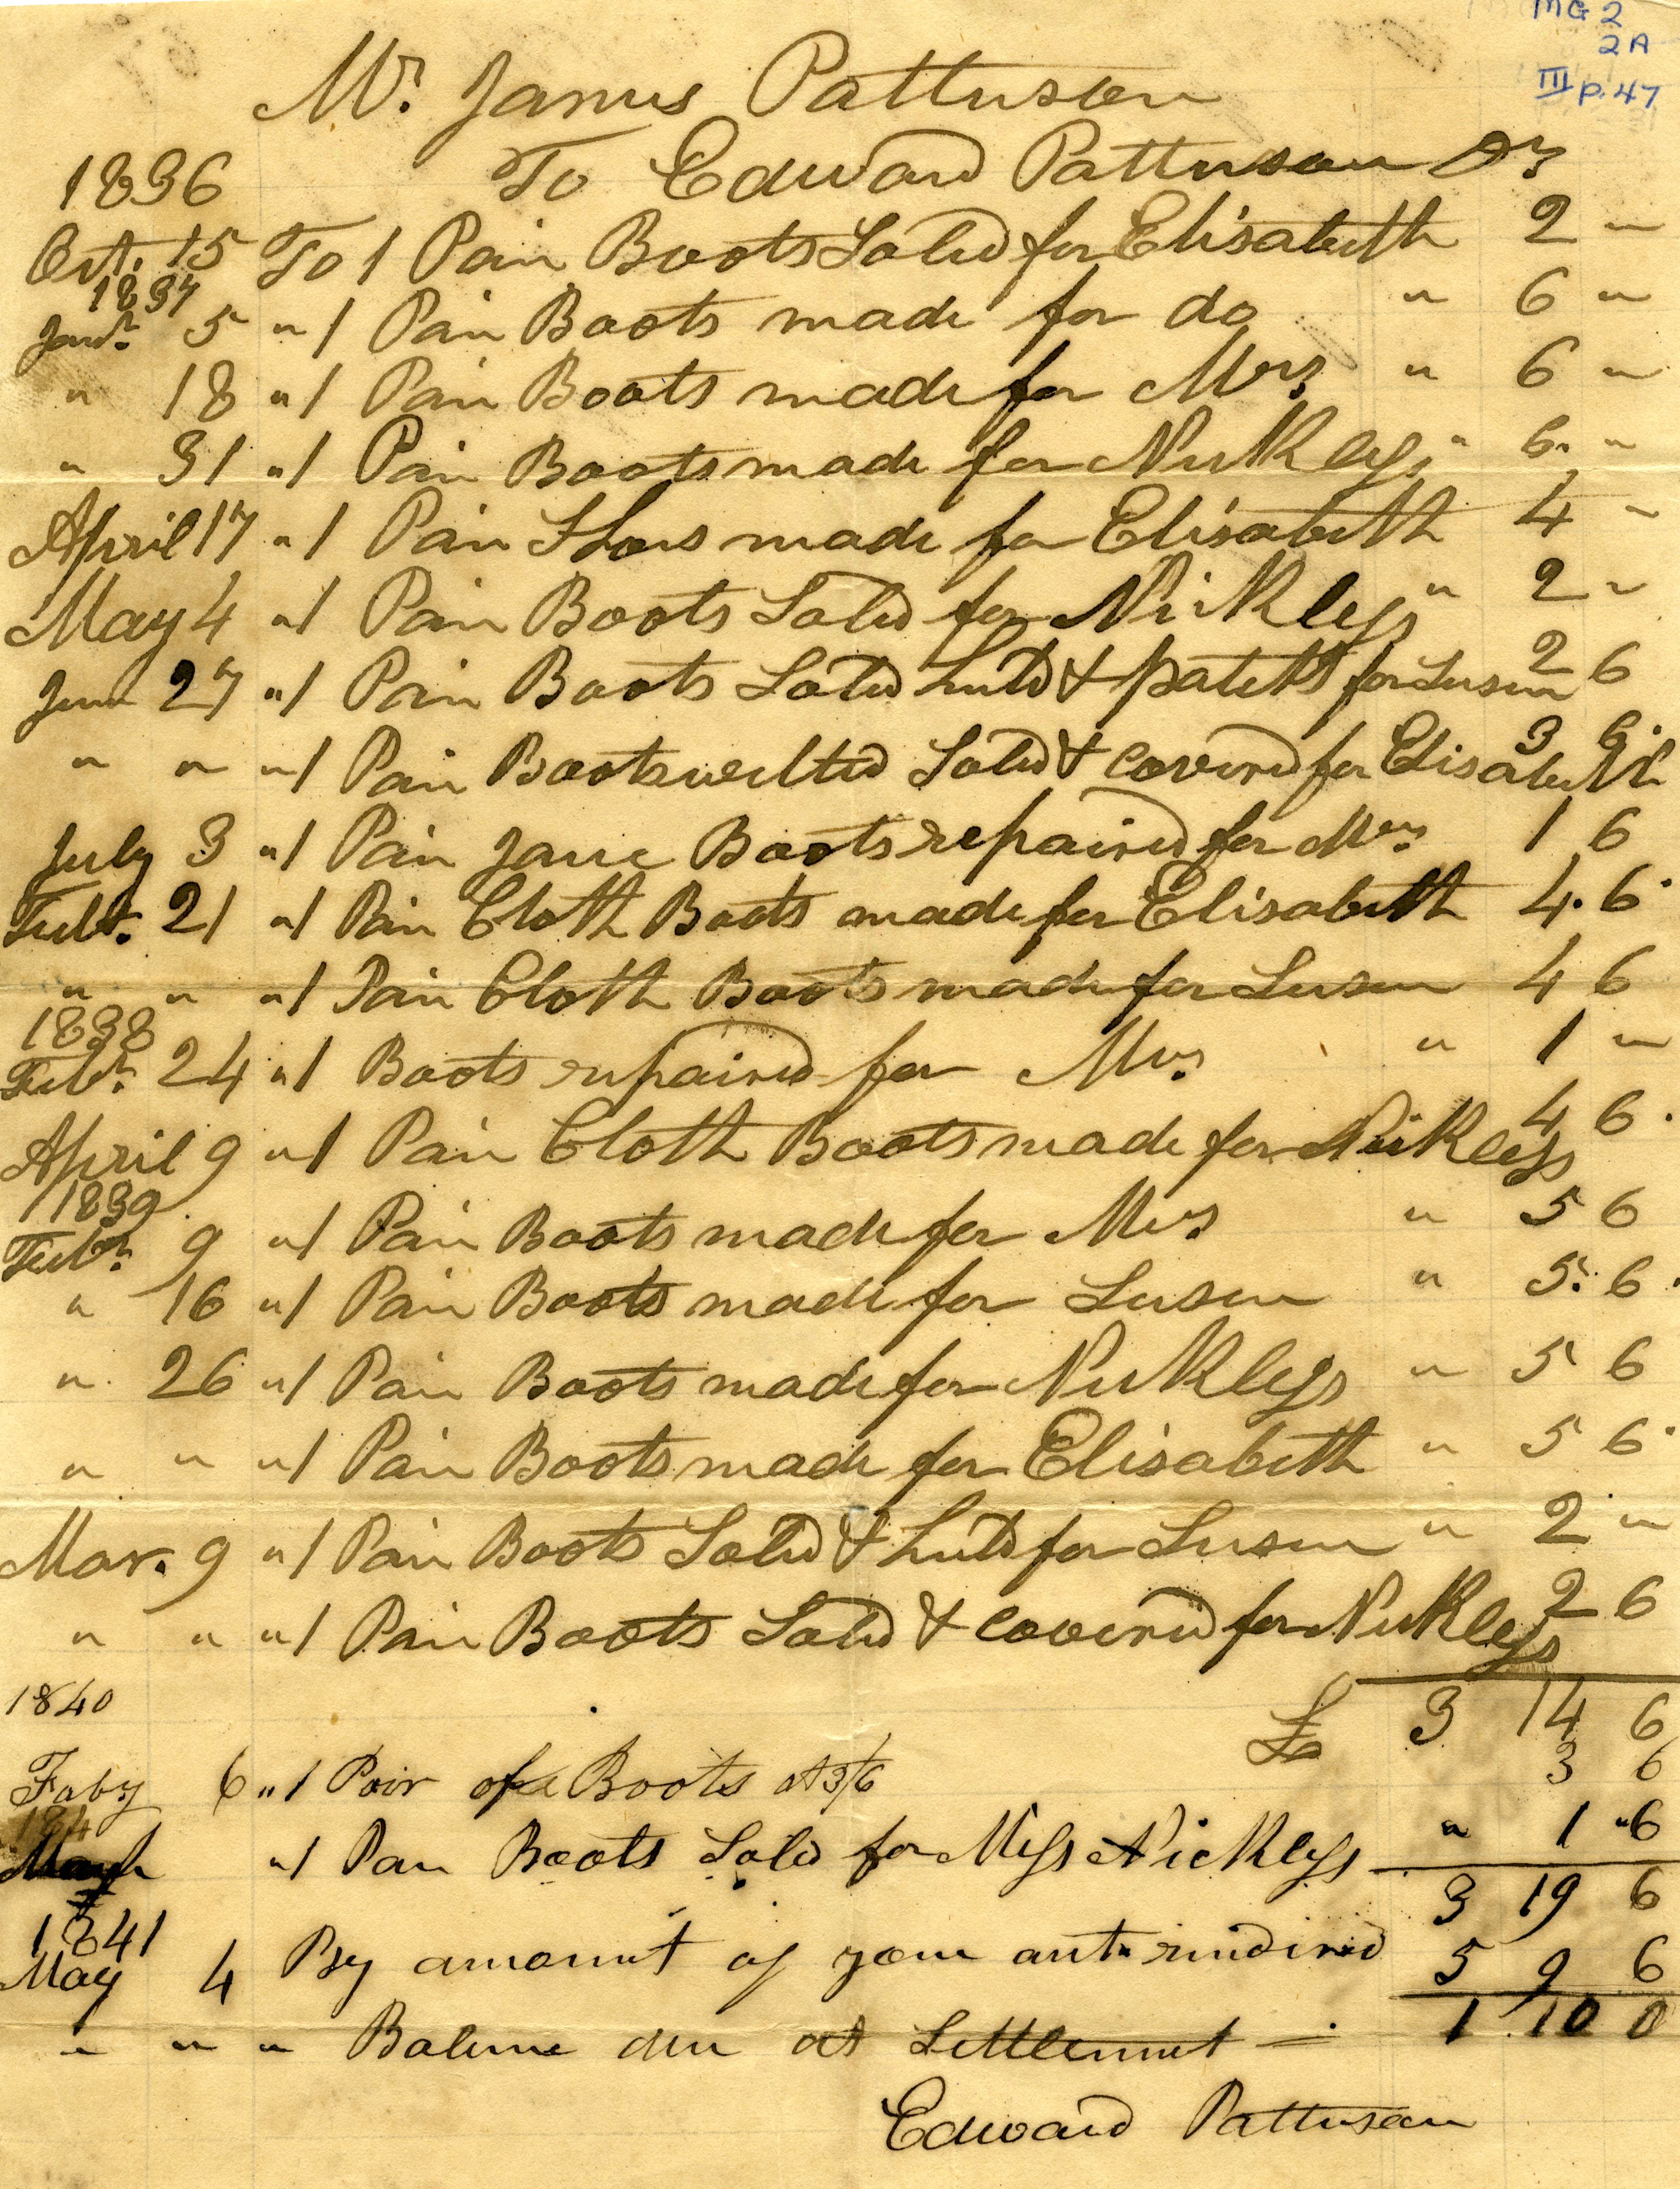 MG 2
2A
III p. 47
Mr. James Patterson
1836 To Edward Patterson Dr
Oct. 15 To 1 Pair Boots Soled for Elisabeth 2 "
1837
Janr. 5 " 1 Pair Boots made for do " 6 "
" 18 " 1 Pair Boots made for Mrs " 6 "
" 31 " 1 Pair Boots made for Nickless " 6. "
April 17 " 1 Pair Shoes made for Elisabeth 4 "
May 4 " 1 Pair Boots Soled for Nickless " 2 "
June 27 " 1 Pair Boots Soled heeld & patchd for Susen 2 6
" " " 1 Pair Boots welted Soled & covered for Elisabeth 3 6
July 3 " 1 Pair Jane Boots repaired for Mrs 1 6
21 " 1 Pair Cloth Boots made for Elisabeth 4. 6
" " " 1 Pair Cloth Boots made for Susen 4 6
1838
Febr. 24 " 1 Boots repaired for Mrs " 1 "
April 9 " 1 Pair Cloth Boots made for Nickless 4 6
1839
Febr. 9 " 1 Pair Boots made for Mrs " 5 6
" 16 " 1 Pair Boots made for Susen " 5. 6
" 26 " 1 Pair Boots made for Nickless " 5 6
" " " 1 Pair Boots made for Elisabeth " 5 6
Mar. 9 " 1 Pair Boots Soled & heeld for Susen " 2 "
" " " 1 Pair Boots Soled & covered for Nickless 2 6
1840 £ 3 14 6
Faby 6 " 1 Pair of Boots at 3/6 3 6
March " 1 Pair Boots Soled for Miss Nickless " 1 "6
3 19 6
1841
May 4 By amount of your act. rendired 5 9 6
" " " Balence due at Settlement — 1 10 0
Edward Patterson